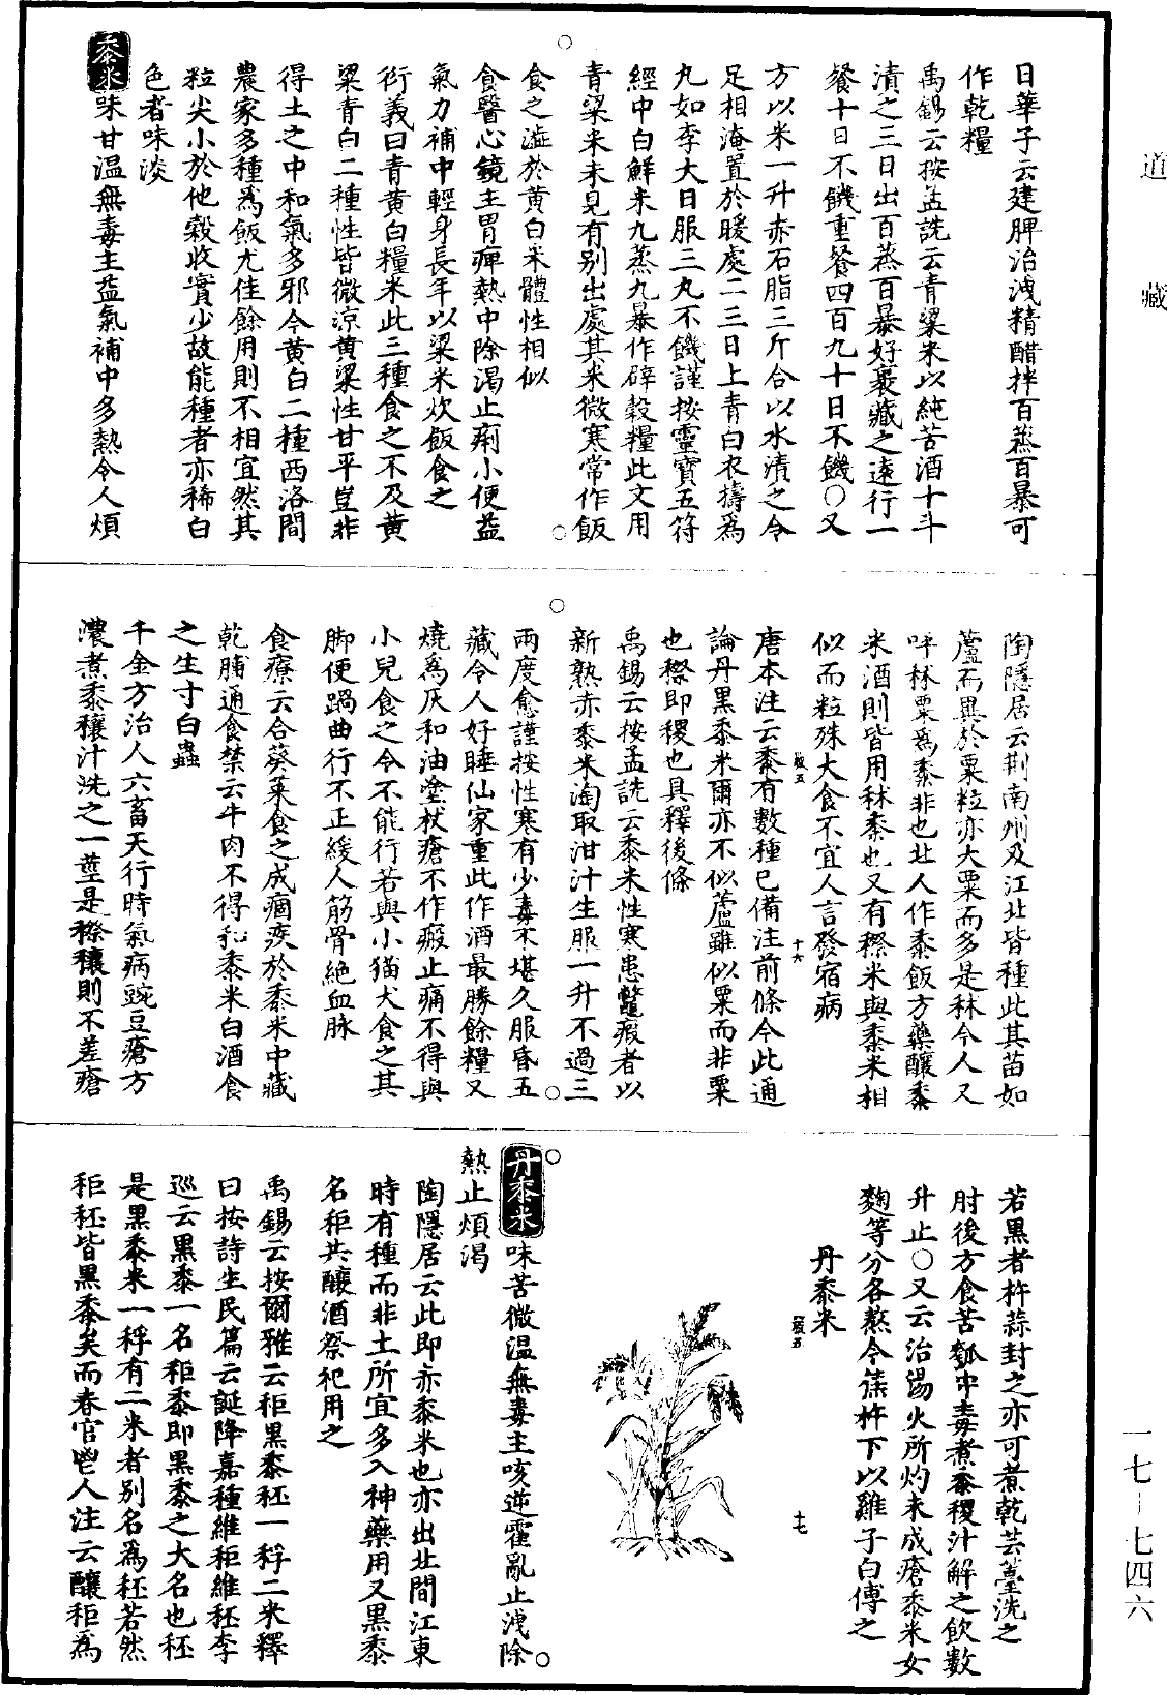 道藏
日華子云建脾治洩精醋拌百蒸百暴可
作乾糧
禹錫云按孟詵云青粱米以純苦酒十斗
漬之三日出百蒸百暴好裹藏之遠行一
餐十日不饑重餐四百九十日不饑○又
方以米一升赤石脂三斤合以水漬之令
足相淹置於暖處二三日上青白衣擣為
丸如李大日服三丸不饑謹按靈寶五符
經中白鮮米九蒸九暴作辟穀糧此文用
青粱米未見有别出處其米微寒常作飯
食之澁於黃白米體性相似
食醫心鏡主胃痺熱中除渴止痢小便益
氣力補中輕身長年以粱米炊飯食之
衍義曰青黃白糧米此三種食之不及黃
粱青白二種性皆微涼黃粱性甘平豈非
得土之中和氣多邪今黃白二種西洛間
農家多種為飯尤佳餘用則不相宜然其
粒尖小於他穀收實少故能種者亦稀白
色者味淡
黍米味甘溫無毒主益氣補中多熱令人煩
陶隱居云荆南州及江北皆種此其苗如
蘆而異於粟粒亦大粟而多是秫今人又
呼秫粟為黍非也北人作黍飯方藥釀黍
米酒則皆用秫黍也又有穄米與黍米相
似而粒殊大食不宜人言發宿病
唐本注云黍有數種已備注前條今此通
論丹黑黍米爾亦不似蘆雖似粟而非粟
也穄即稷也具釋後條
禹錫云按孟詵云黍米性寒患鼈瘕者以
新熟赤黍米淘取泔汁生服一升不過三
兩度愈謹按性寒有少毒不堪久服昏五
藏令人好睡仙家重此作酒最勝餘糧又
燒為灰和油塗杖瘡不作瘢止痛不得與
小兒食之令不能行若與小猫犬食之其
脚便踻曲行不正緩人筋骨絶血脉
食療云合葵菜食之成痼疾於黍米中藏
乾脯通食禁云牛肉不得和黍米白酒食
之生寸白蟲
千金方治人六畜天行時氣病豌豆瘡方
濃煮黍穰汁洗之一莖是穄穰則不差瘡
若黑者杵蒜封之亦可煮乾芸薹洗之
肘後方食苦瓠中毒煮黍穰汁解之飲數
升止○又云治湯火所灼未成瘡黍米女
麴等分各熬令燋杵下以雞子白傅之
丹黍米
丹黍米味苦微溫無毒主咳逆霍亂止洩除
熱止煩渴
陶隱居云此即赤黍米也亦出北間江東
時有種而非土所宜多入神藥用又黑黍
名秬共釀酒祭祀用之
禹錫云按爾雅云秬黑黍秠一稃二米釋
曰按詩生民篇云誕降嘉種維秬維秠李
巡云黑黍一名秬黍即黑黍之大名也秠
是黑黍米一稃有二米者別名為秠若然
秬秠皆黑黍矣而春官鬯人注云釀秬為
一七—七四六